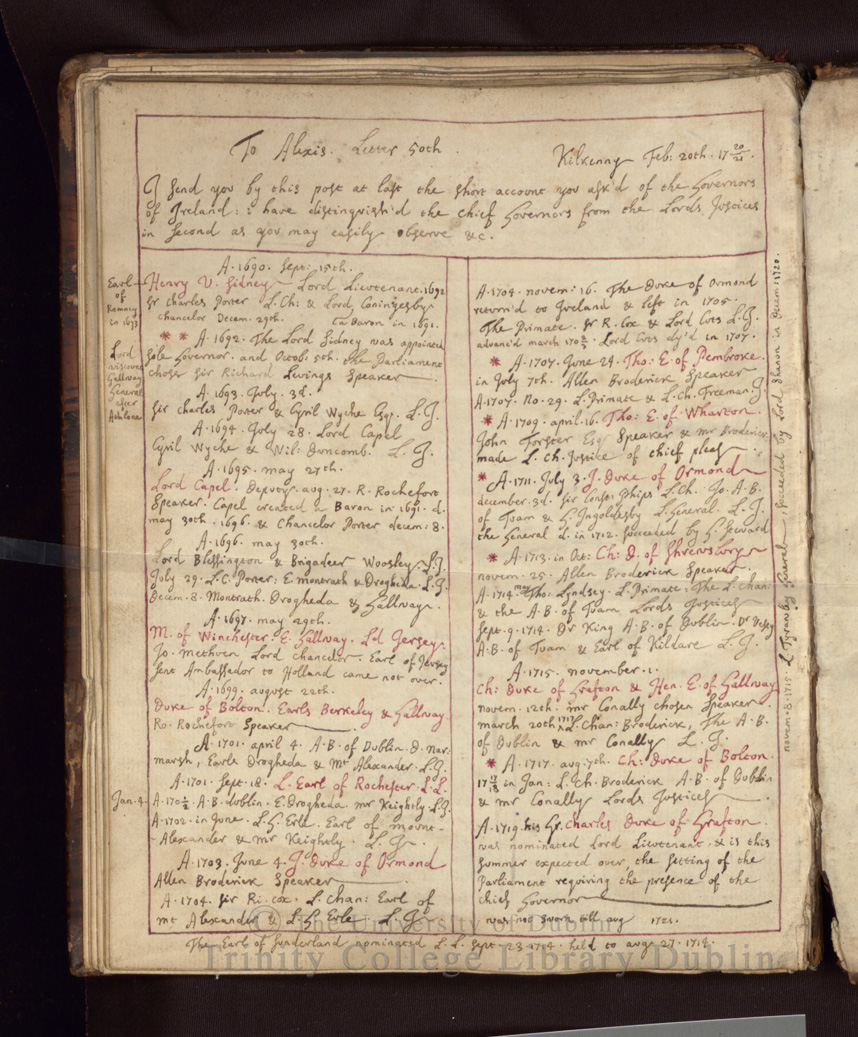 To Alexis. Letter 50th. Kilkenny Feb: 20th. 17 20/21.
I send you by this post at last the short account you ask'd of the Governors
of Ireland: i have distinguish'd the chief Governors from the Lords Justices
in second as you may easily observe &c.
Earl
of
Romney
in 1693
Lord
viscount
Gallway
General
after
Athlone
Jan. 4
A. 1690. Sept: 15th.
Henry V. Sidney Lord Lieutenant. 1692
Sr Charles Porter L. Ch: & Lord Coningesby
chancelor Decem. 29th. Baron in 1691.
* * A. 1692. The Lord Sidney was appointed
sole Governor. and Octob: 5th. the Parliament
chose Sir Richard Levings Speaker
A. 1693. July. 3d.
Sir Charles Porter & Cyril Wyche Esqr. L. J.
A. 1694. July 28. Lord Capel
Cyril Wyche & Wil: Duncomb. L. J.
A. 1695. may 27th.
Lord Capel. Deputy. aug. 27. R. Rochefort
Speaker. Capel created a Baron in 1691. d.
may 30th. 1696. & Chancelor Porter decem: 8.
A. 1696. may 30th.
Lord Blessington & Brigadeer Woosley. L. J.
July 29. L. C. Porter: E. montrath & Drogheda. L. J.
Decem. 8. Montrath. Drogheda & Gallway.
A. 1697. may 29th.
M. of Winchester. E. Gallway. Ld Jersey.
Jo. Methven Lord chancelor. Earl of Jersey
sent Ambassador to Holland came not over.
A. 1699. august 22th.
Duke of Bolton. Earls Berkeley & Gallway.
Ro. Rochefort Speaker
A. 1701. april 4. A. B. of Dublin. D. nar:
marsh, Earle Drogheda & Mt Alexander. L. J.
A. 1701. Sept. 18. L. Earl of Rochester. L. L.
A. 170½. A. B. dublin. E. Drogheda. mr Keighly. L. J.
A. 1702. in June. L. G. Erle. Earl of mount-
Alexander & mr Keightly. L. J.
A. 1703. June 4. J. Duke of Ormond
Allen Broderick Speaker
A. 1704. Sir Ri: Cox. L. Chan: Earl of
mt Alexander & L. G. Erle. L. J.
A. 1704. novem: 16. The Duke of Ormond
return'd to Ireland & left in 1705.
The Primate. Sr R. Cox & Lord Cuts L. J.
advanc'd march Lord Cuts dy'd in 1707.
* A. 1707. June 24. Tho: E. of Pembroke.
in July 7th. Allen Broderick Speaker
A. 1707. No. 29. L. Primate & L. Ch. Freeman. J.
* A. 1709. april. 16. Tho: E. of Wharton.
John Forster Esqr Speaker & mr Broderick
made L. Ch. Justice of chief pleas
* A. 1711. July 3. J. Duke of Ormond
december. 3d. Sir Const: Phips. L. Ch. Jo. A. B.
of Tuam & G. Ingoldesby L. General. L. J.
the General d. in 1712. succeeded by G. Steward
* A. 1713. in Oct: Ch: D. of Shrewsbury
novem. 25. Allen Broderick Speaker.
A. 1714. may Tho. Lyndsey. L. Primate. The L. Chan:
& the A. B. of Tuam, Lords Justices
Sept. 9. 1714. Dr King A. B. of Dublin. Dr Vesey
A. B. of Tuam & Earl of Kildare L. J.
A. 1715. november. 1.
Ch: Duke of Grafton & Hen. E. of Gallway
novem. 12th. mr Conally chosen Speaker.
march 20th 1717 L. Chan: Broderick, The A. B.
of Dublin & mr Conally L. J.
* A. 1717. aug. 7th. Ch: Duke of Bolton.
17 17/18 in Jan: L. Ch. Broderick A. B. of Dublin
& mr Conally Lords Justices
A. 1719. his Gr. Charles Duke of Grafton.
was nominated Lord Lieutenant. & is this
summer expected over, the setting of the
Parliament requiring the presence of the
chief Governor
was not sworn till aug 1721.
novem. 8. 1715. L. Tyrawley General succeeded by Lord Shanon in Decem 1720.
The Earl of Sunderland nominated L. L. Sept. 23. 1714. held to aug. 27. 1715.
© The University of Dublin
Trinity College Library Dublin